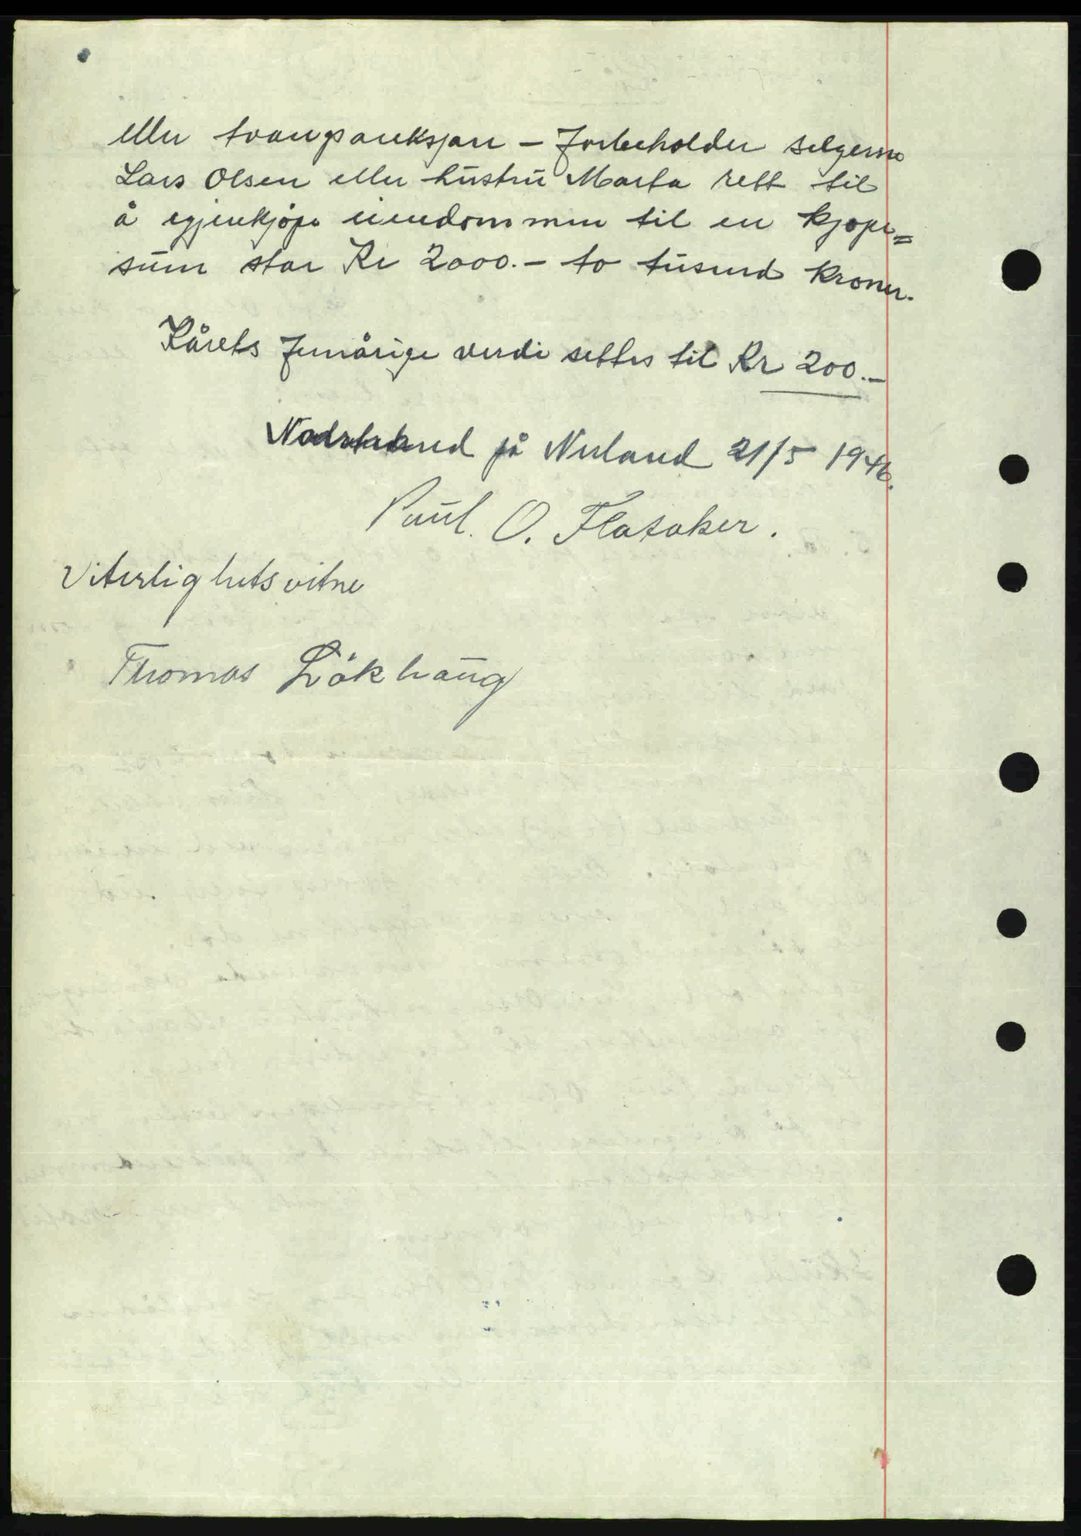 eller tvangsauksjon – forbeholder selgerne
Lars Olsen eller hustru Marta rett til
å igjenkjøpe eiendommen til en kjøpe=
sum stor Kr 2000.– to tusend kroner.
Kårets femårige verdi settes til Kr 200.–
Nordstrand på Nerland 21/5 1946.
Paul. O. Flatøker.
Viterlighetsvitne
Thomas Lökhaug